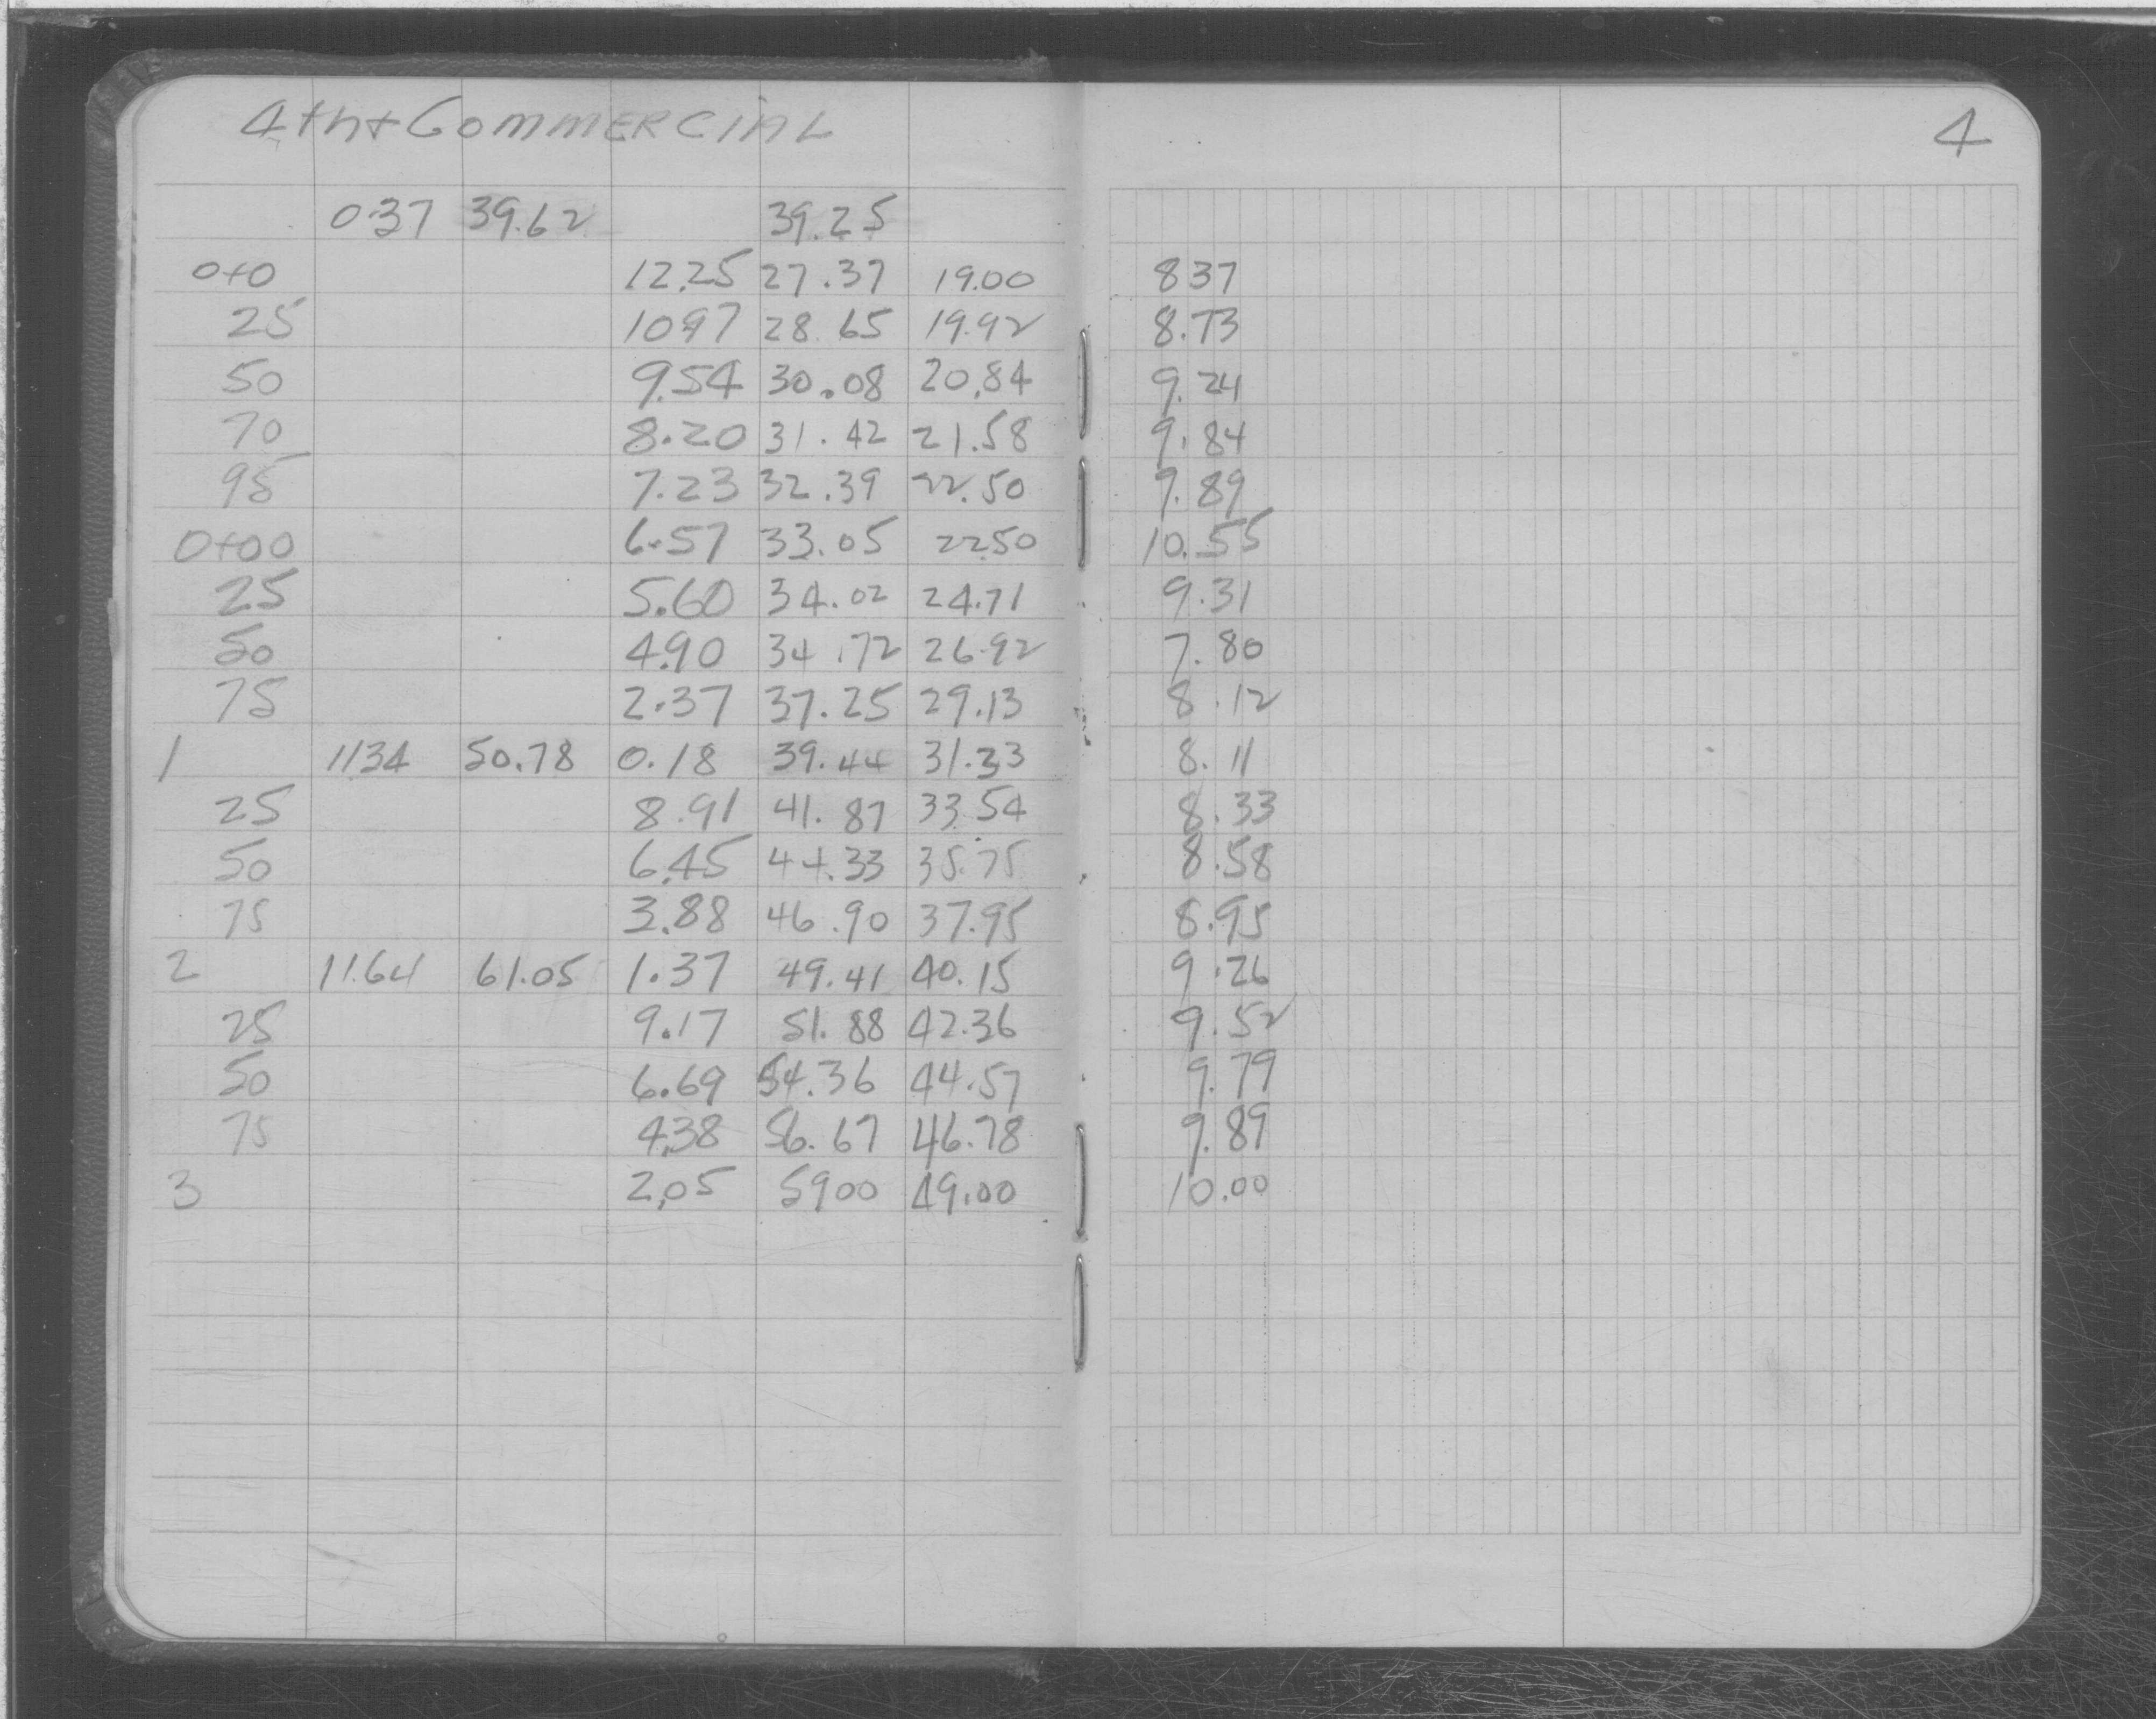 4th + COMMERCIAL
4
0.37 39.62 39.25
0+0 12.25 27.37 19.00 8 37
25 10.97 28.65 19.92 8.73
50 9.54 30.08 20.84 9.24
70 8.20 31.42 21.58 9.84
95 7.23 32.39 22.50 9.89
0+00 6.57 33.05 22.50 10.55
25 5.60 34.02 24.71 9.31
50 4.90 34.72 26.92 7.80
75 2.37 37.25 29.13 8.12
1 11.34 50.78 0.18 39.44 31.33 8.11
25 8.91 41.87 33.54 8.33
50 6.45 44.33 35.75 8.58
75 3.88 46.90 37.95 8.95
2 11.64 61.05 1.37 49.41 40.15 9.26
25 9.17 51.88 42.36 9.52
50 6.69 54.36 44.57 9.79
75 4.38 56.67 46.78 9.89
3 2.05 59 00 49.00 10.00